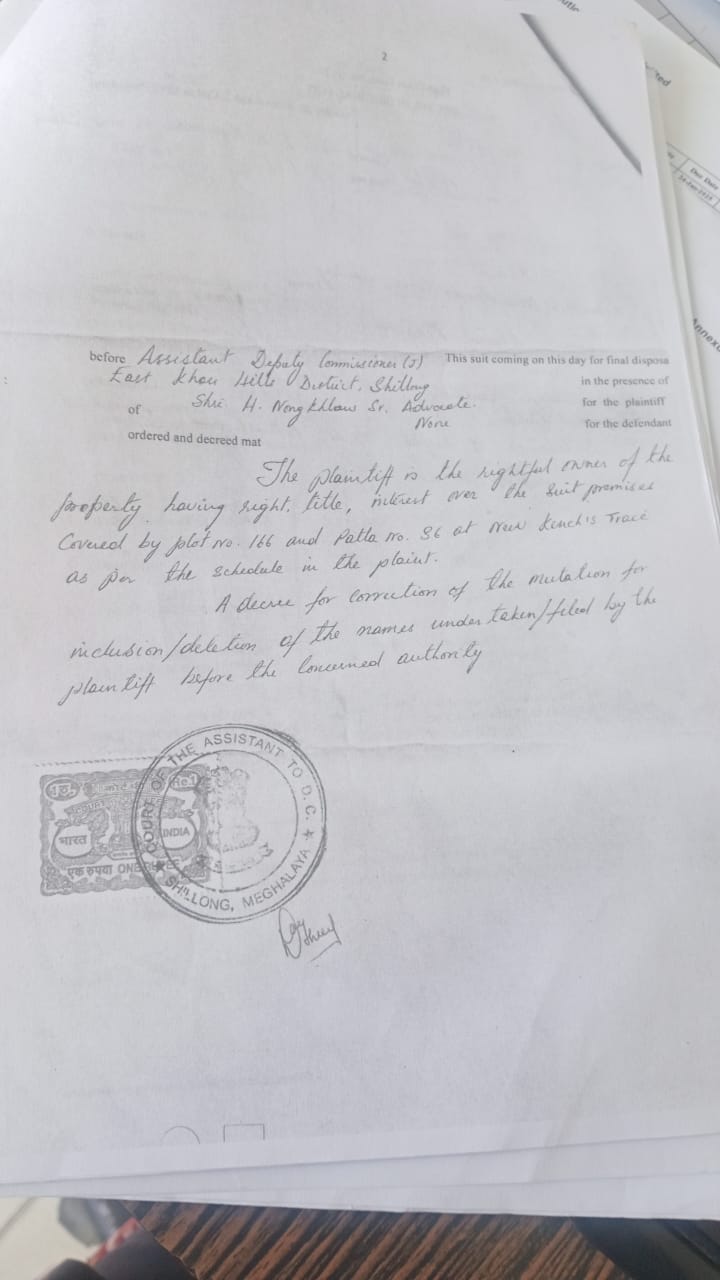 2
before Assistant Deputy Commissioner (J) This suit coming on this day for final disposa
East Khasi Hills District, Shillong in the presence of
of Shri H. Nongkhlaw Sr. Advocate. for the plaintiff
None for the defendant
ordered and decreed mat
The plaintiff is the rightful owner of the
property having right, title, interest over the suit premises
Covered by plot no. 166 and Patta no. 36 at New Kench's Trace
as per the schedule in the plaint.
A decree for correction of the mutation for
inclusion/deletion of the names under taken/filed by the
plaintiff before the concerned authority
COURT OF THE ASSISTANT TO D. C.
SHILLONG, MEGHALAYA
भारत INDIA
एक रुपया ONE
Due Date